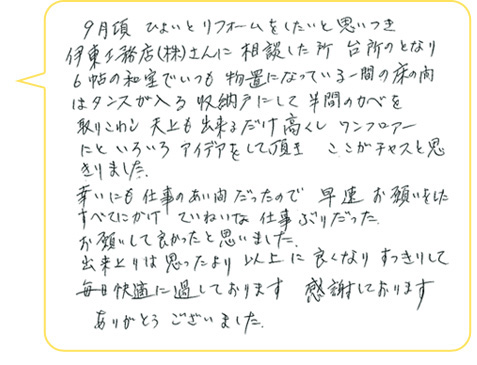 9月頃 ひょいとリフォームをしたいと思いつき
伊東工務店(株)さんに 相談した所 台所のとなり
6帖の和室でいつも 物置になっている一間の床の間
はタンスが入る 収納戸にして 半間のカベを
取りこわし 天上も出来るだけ高くし ワンフロアー
にと いろいろ アイデアをして頂き ここがチャスと思
きりました。
幸いにも 仕事のあい間だったので 早速 お願いをした
すべてにかけ ていねいな 仕事ぶりだった。
お願いして良かったと思いました。
出来上りは思ったより 以上に 良くなり すっきりして
毎日快適に過しております 感謝しております
ありがとう ございました。